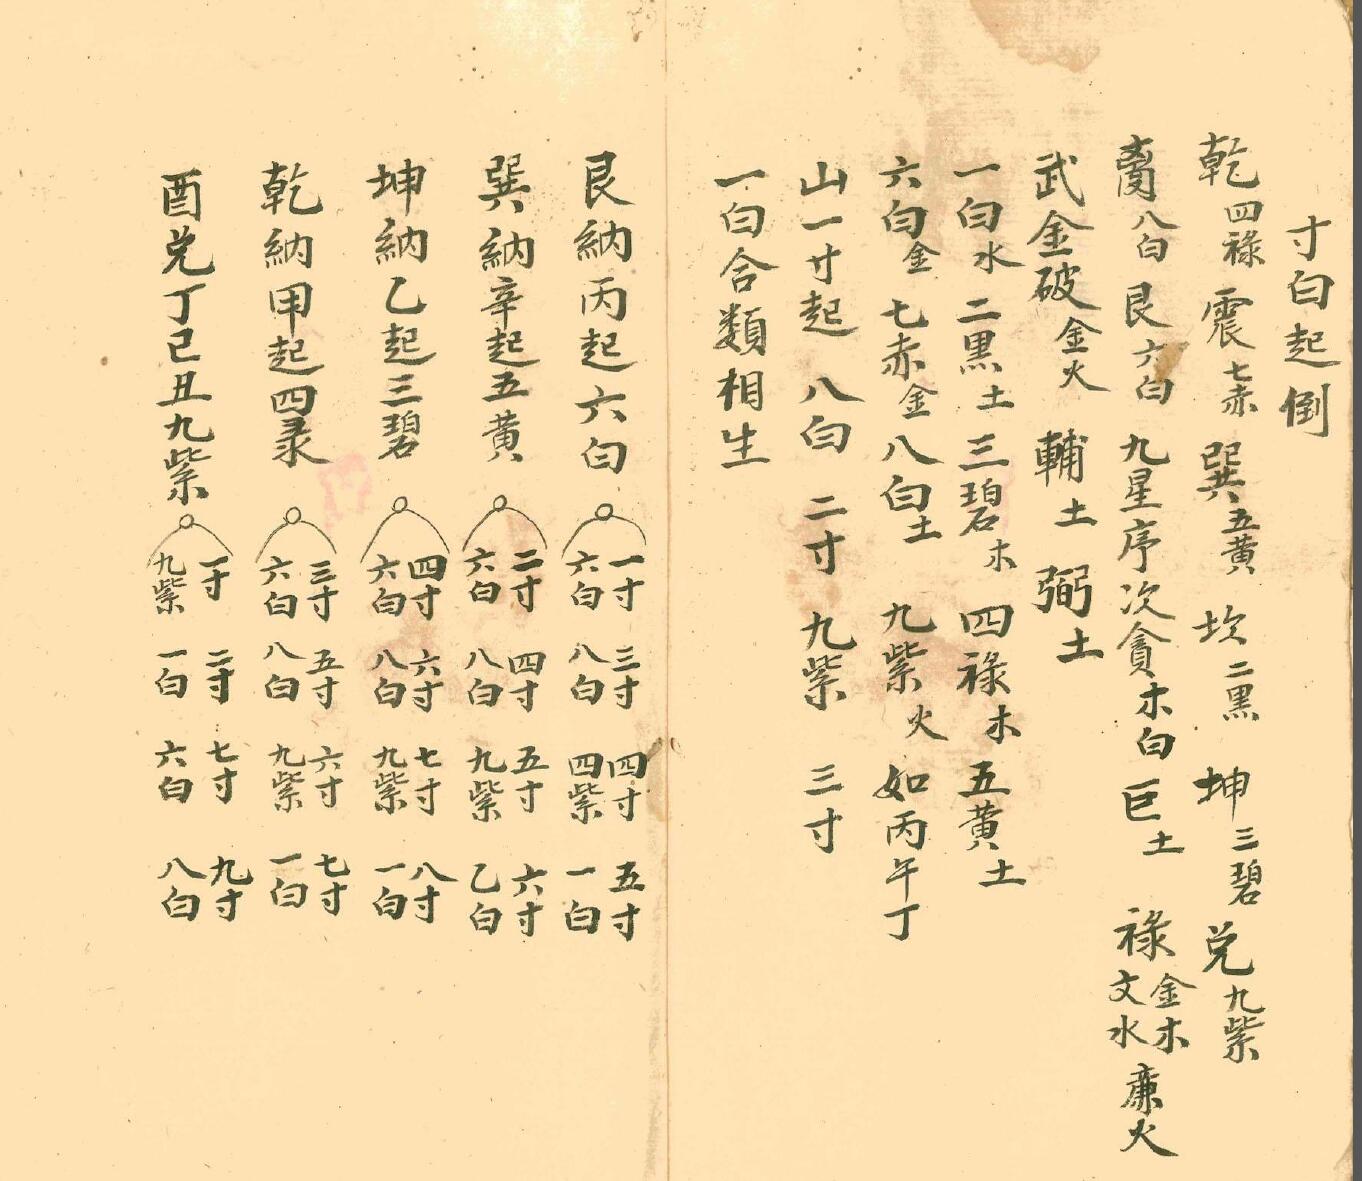 寸白起倒
乾四祿 震七赤 巽五黃 坎二黑 坤三碧 兌九紫
离八白 艮六白 九星序次貪木白 巨土 祿金木文水 廉火
武金破金火 輔土 弼土
一白水 二黑土 三碧木 四祿木 五黃土
六白金 七赤金 八白土 九紫火 如丙午丁
山一寸起 八白 二寸 九紫 三寸
一白合類相生
艮納丙起六白 一寸六白 三寸八白 四寸四紫 五寸一白
巽納辛起五黃 二寸六白 四寸八白 五寸九紫 六寸乙白
坤納乙起三碧 四寸六白 六寸八白 七寸九紫 八寸一白
乾納甲起四录 三寸六白 五寸八白 六寸九紫 七寸一白
酉兌丁已丑九紫 一寸九紫 二寸一白 七寸六白 九寸八白